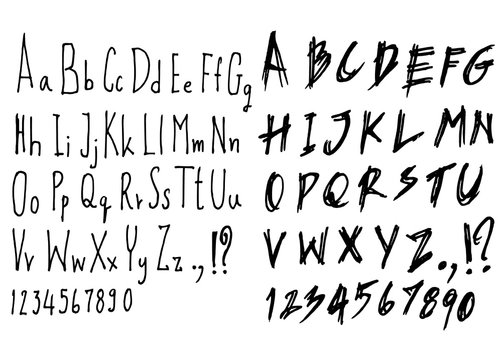 Aa Bb Cc Dd Ee Ff Gg
Hh Ii Jj Kk Ll Mm Nn
Oo Pp Qq Rr Ss Tt Uu
Vv Ww Xx Yy Zz .,!?
1234567890
A B C D E F G
H I J K L M N
O P Q R S T U
V W X Y Z .,!?
1234567890